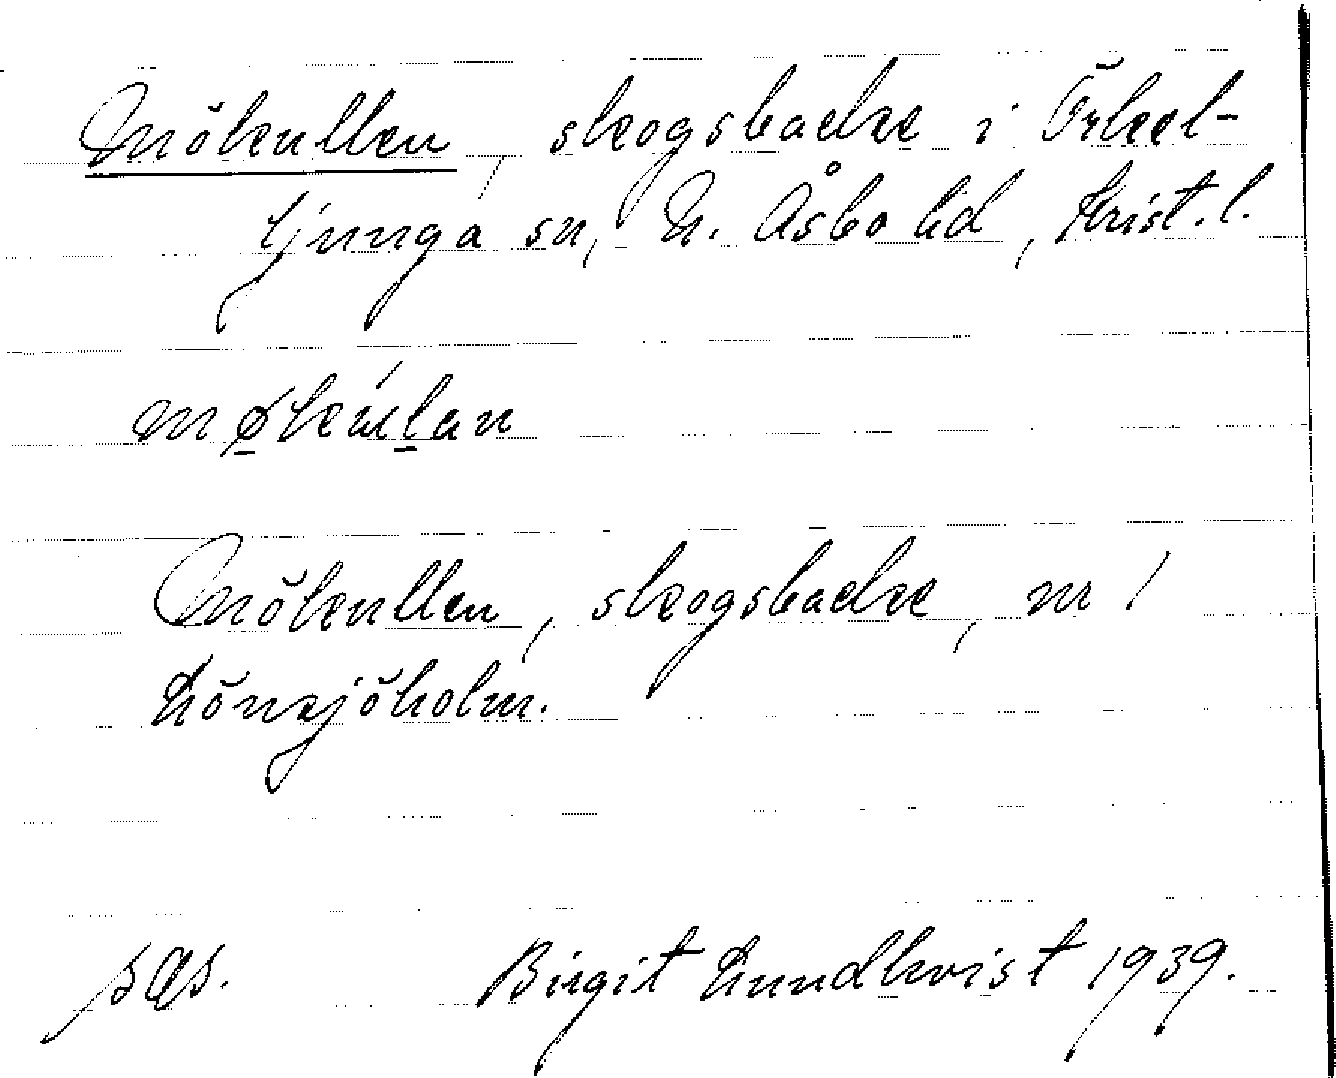 Mökullen, skogsbacke i Örkel-
ljunga sn, N. Åsbo hd, Krist. l.
Mökullen, skogsbacke, m 1
Lönsjöholm.
Birgit Lundkvist 1939.